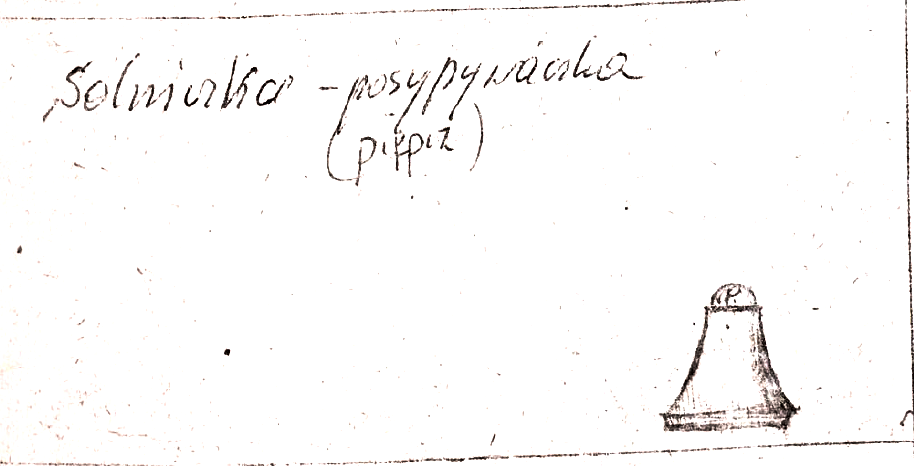 Solniczka - posypywaczka
(pieprz)